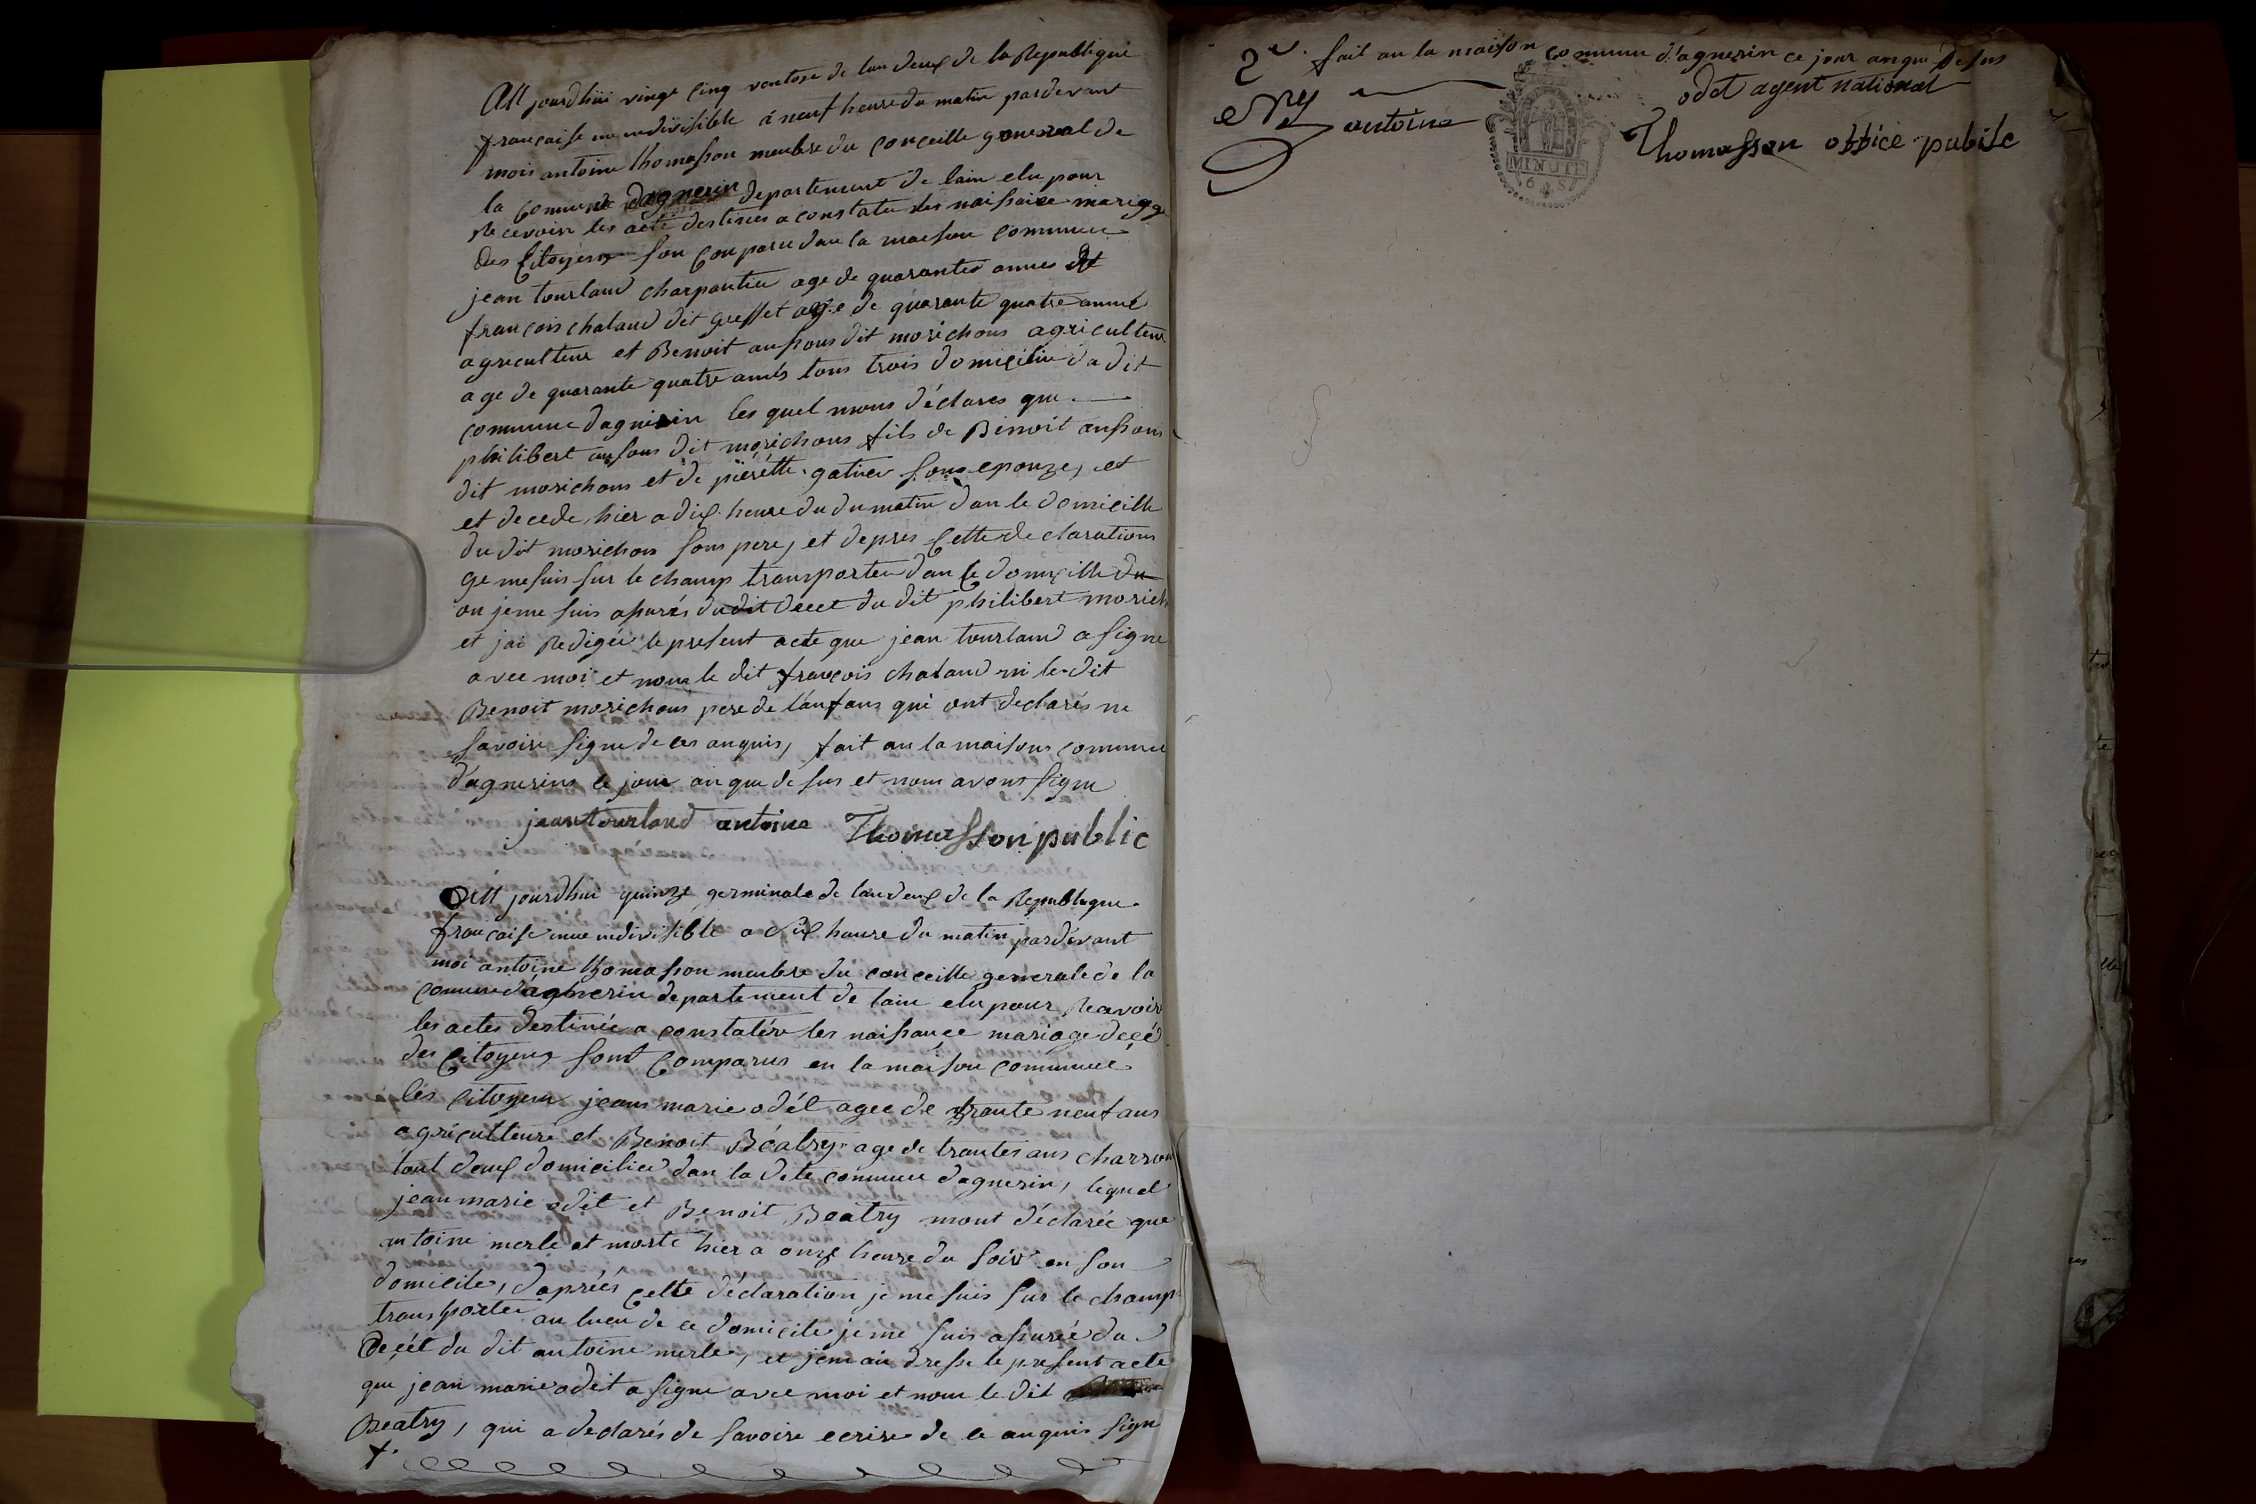 Au jourdhui vingt cinq vantose de lan deux de la Republique
francaise une indivisible á neuf heure du matin pardevant
mois antoine thomasson membre du conceille general de
la comune dagnerin departement de lain elu pour
Recevoir les acte destinés a constater les naissance mariage
des Citoyens son comparu dan la maison commune
jean tourlaud charpantier age de quarantes annes et
francois chataud dit greffet age de quarante quatre anné
agriculteur et Benoit aussous dit morichons agriculteur
age de quarante quatre anés tous trois domicilié da dit
commune dagnerin les quel mous déclares que
philibert aussous dit morichons fils de Benoit aussous
dit morichons et de pierétte gatier sons epouze, et
et decede hier a dix heure du du matin dan le domicille
du dit morichons sons pere, et depres cette declarations
ge me suis sur le champ transporter dan le domicille du
ou je me suis assurés du dit decet du dit philibert morich
et jai Redigée le present acte que jean tourlaud a signe
avec moi et nom le dit françois chataud ni le dit
Benoit morichons pere de lanfans qui ont declarés ne
savoire signe de ces anquis, fait an la maisons commune
dagnerins le jour an que desus et nous avons signe
jean tourlaud antoine Thomasson public
Au jourdhui quinze germinale de lan deux de la Republique
francaise une indivisible a dix heure du matin pardevant
moi antoine thomasson membre du conceille generale de la
comune dagnerin departement de lain elu pour Reavoir
les actes destinée a constatér les naissançe mariage decé
des Citoyens sont comparus en la maison commune
les Citoyens jeans marie odét agee de trante neuf ans
agriculteure et Benoit Béatry age de trantes ans charron
tout deux domicilier dan la dite commune dagnerin, lequel
jean marie odet et Benoit Beatry mont déclarée que
antoine merle et morte hier a onze heure du soir en son
domicile, daprées cette déclaration je me suis sur le champ
transporter au lieu de ce domicile je me suis assurée du
Decét du dit antoine merle, et jean ai dresse le present acte
que jean marie odet a signe avec moi et nom le dit
Beatry, qui a declarés de savoire ecrire de ce anquis sign
2e. fait an la maison comune d'agnerin ce jour an que desus
odet agent national
Ney
antoine
Thomasson office publie
MINUTE